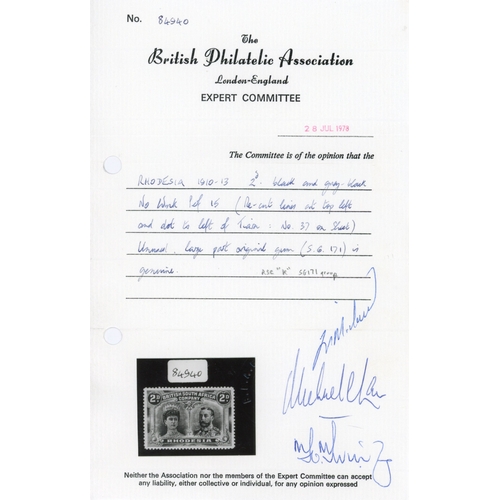 No. 84940
The
British Philatelic Association
London-England
EXPERT COMMITTEE
28 JUL 1978
The Committee is of the opinion that the
RHODESIA 1910-13 2d. black and grey-black
No Perf 15 (Re-cut lines at top left
and dot to left of : No. 37 on Sheet)
Unused, large part original gum (S.G. 171) is
genuine.
"K" SG171
84940
2D BRITISH SOUTH AFRICA COMPANY 2D
RHODESIA
Neither the Association nor the members of the Expert Committee can accept
any liability, either collective or individual, for any opinion expressed